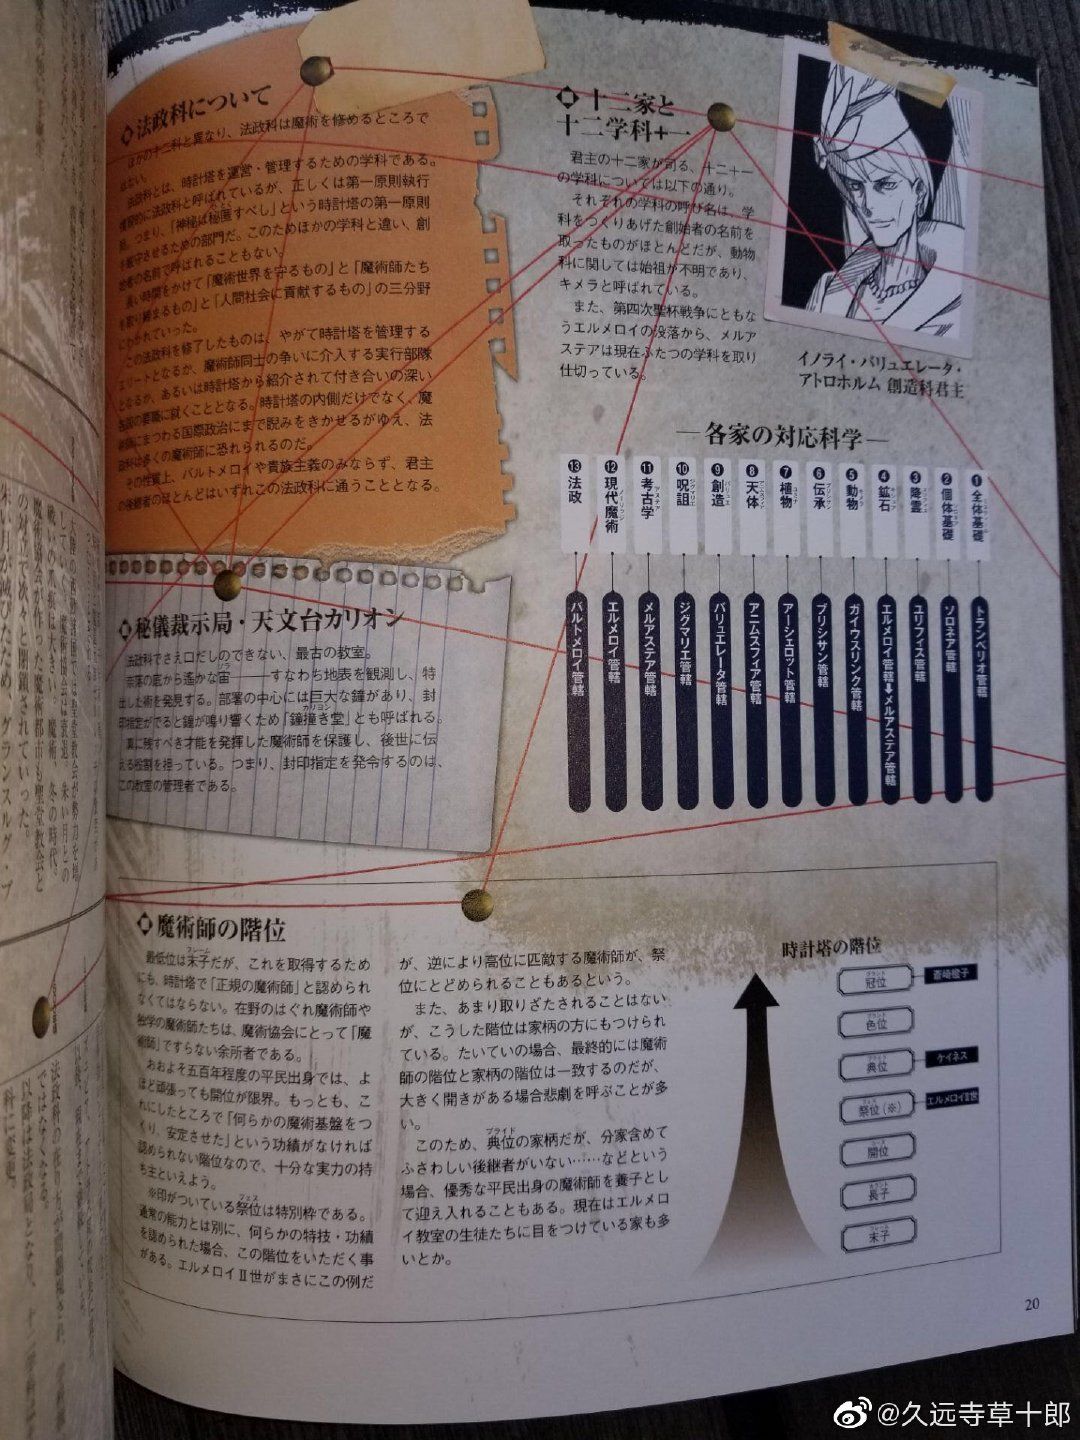 法政科について
ほかの十二科と異なり、法政科は魔術を修めるところで
はない。
法政科とは、時計塔を運営・管理するための学科である。
慣習的に法政科と呼ばれているが、正しくは第一原則執行
局。つまり、「神秘は秘匿すべし」という時計塔の第一原則
を厳守させるための部門だ。このためほかの学科と違い、創
始者の名前で呼ばれることもない。
長い時間をかけて「魔術世界を守るもの」と「魔術師たち
を取り締まるもの」と「人間社会に貢献するもの」の三分野
にわかれていった。
この法政科を修了したものは、やがて時計塔を管理する
エリートとなるが、魔術師同士の争いに介入する実行部隊
となるか、あるいは時計塔から紹介されて付き合いの深い
各国の要職に就くこととなる。時計塔の内側だけでなく、魔
術師にまつわる国際政治にまで睨みをきかせるがゆえ、法
政科は多くの魔術師に恐れられるのだ。
その性質上、バルトメロイや貴族主義のみならず、君主
の後継者のほとんどはいずれこの法政科に通うこととなる。
秘儀裁示局・天文台カリオン
法政科でさえ口だしのできない、最古の教室。
奈落の底から遙かな宙――すなわち地表を観測し、特
出した術を発見する。部署の中心には巨大な鐘があり、封
印指定がでると鐘が鳴り響くため「鐘撞き堂」とも呼ばれる。
カリヨン
裏に残すべき才能を発揮した魔術師を保護し、後世に伝
える役割を担っている。つまり、封印指定を発令するのは、
この教室の管理者である。
十二家と
十二学科+一
君主の十二家が司る、十二十一
の学科については以下の通り。
それぞれの学科の呼び名は、学
科をつくりあげた創始者の名前を
取ったものがほとんどだが、動物
科に関しては始祖が不明であり、
キメラと呼ばれている。
また、第四次聖杯戦争にともな
うエルメロイの没落から、メルア
ステアは現在ふたつの学科を取り
仕切っている。
イノライ・バリュエレータ・
アトロホルム 創造科君主
―各家の対応科学―
❶全体基礎
トランベリオ管轄
❷個体基礎
ソロネア管轄
❸降霊
ユリフィス管轄
❹鉱石
エルメロイ管轄➡メルアステア管轄
❺動物
ガイウスリンク管轄
❻伝承
ブリシサン管轄
❼植物
アーシェロット管轄
❽天体
アニムスフィア管轄
❾創造
バリュエレータ管轄
❿呪詛
ジグマリエ管轄
⓫考古学
メルアステア管轄
⓬現代魔術
エルメロイ管轄
⓭法政
バルトメロイ管轄
魔術師の階位
最低位は末子だが、これを取得するため
にも、時計塔で「正規の魔術師」と認められ
なくてはならない。在野のはぐれ魔術師や
独学の魔術師たちは、魔術協会にとって「魔
術師」ですらない余所者である。
おおよそ五百年程度の平民出身では、よ
ほど頑張っても開位が限界。もっとも、こ
れにしたところで「何らかの魔術基盤をつ
くり、安定させた」という功績がなければ
認められない階位なので、十分な実力の持
ち主といえよう。
※印がついている祭位は特別枠である。
通常の能力とは別に、何らかの特技・功績
を認められた場合、この階位をいただく事
がある。エルメロイⅡ世がまさにこの例だ
が、逆により高位に匹敵する魔術師が、祭
位にとどめられることもあるという。
また、あまり取りざたされることはない
が、こうした階位は家柄の方にもつけられ
ている。たいていの場合、最終的には魔術
師の階位と家柄の階位は一致するのだが、
大きく開きがある場合悲劇を呼ぶことが多
い。
このため、典位の家柄だが、分家含めて
ふさわしい後継者がいない……などという
場合、優秀な平民出身の魔術師を養子とし
て迎え入れることもある。現在はエルメロ
イ教室の生徒たちに目をつけている家も多
いとか。
時計塔の階位
冠位
蒼崎橙子
色位
典位
ケイネス
祭位(※)
エルメロイⅡ世
開位
長子
末子
20
@久远寺草十郎